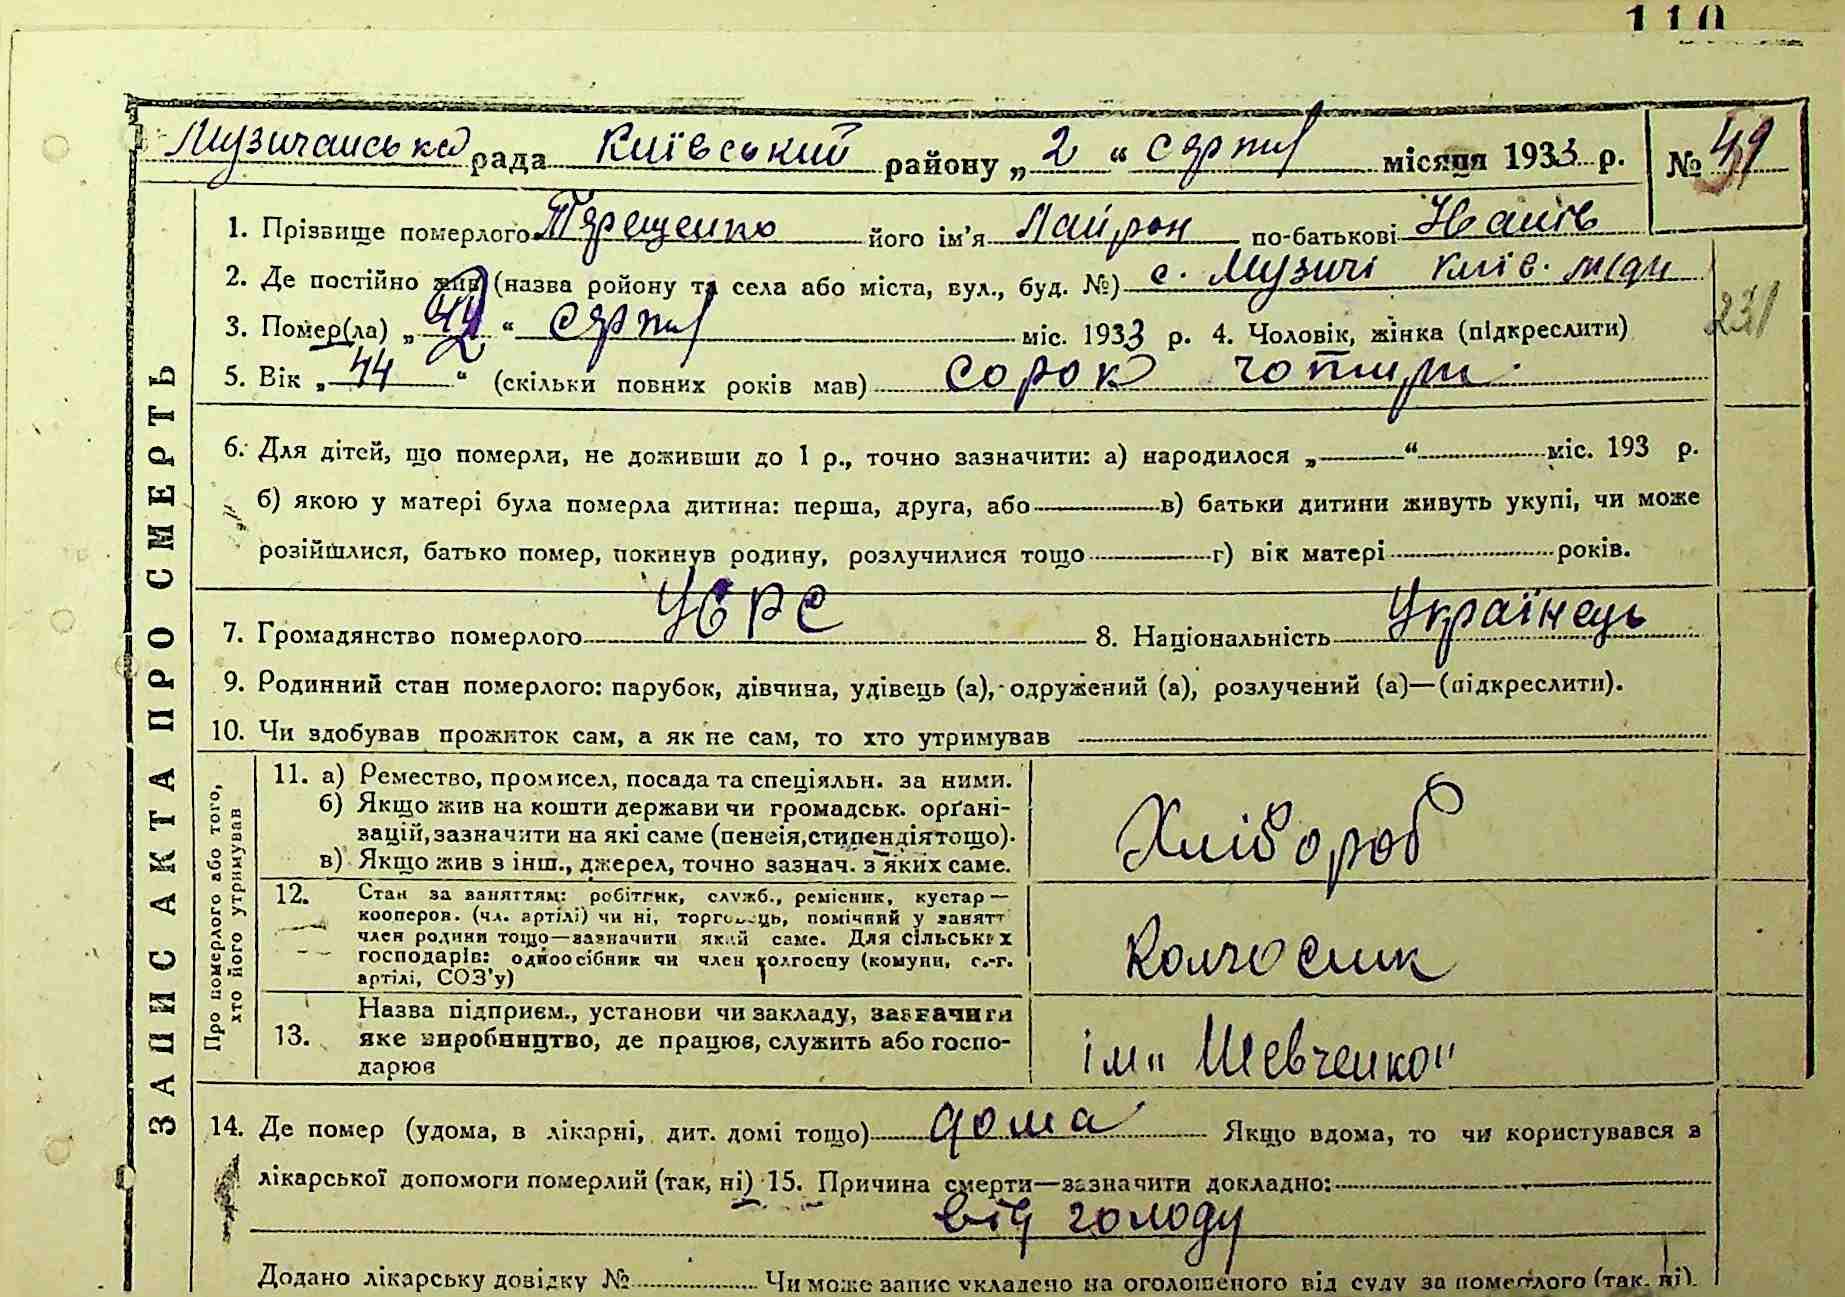 110
Музичанська рада Київський району „2“ серпня місяця 1933 р. № 49
1. Прізвище померлого Терещенко його ім'я по-батькові Іванів
2. Де постійно жив (назва ройону та села або міста, вул., буд. №) с. Музичі Київ.
3. Помер(ла) „2“ серпня міс. 1933 р. 4. Чоловік, жінка (підкреслити)
231
5. Вік „44“ (скільки повних років мав) сорок чотири
6. Для дітей, що померли, не доживши до 1 р., точно зазначити: а) народилося „ “ міс. 193 р.
б) якою у матері була померла дитина: перша, друга, або в) батьки дитини живуть укупі, чи може
розійшлися, батько помер, покинув родину, розлучилися тощо г) вік матері років.
7. Громадянство померлого УСРС 8. Національність Українець
9. Родинний стан померлого: парубок, дівчина, удівець (а), одружений (а), розлучений (а)—(підкреслити).
10. Чи здобував прожиток сам, а як не сам, то хто утримував
ЗАПИС АКТА ПРО СМЕРТЬ
Про померлого або того, хто його утримував
11. а) Ремество, промисел, посада та спеціяльн. за ними.
б) Якщо жив на кошти держави чи громадськ. орґані-
зацій, зазначити на які саме (пенсія, стипендія тощо).
в) Якщо жив з інш., джерел, точно зазнач. з яких саме.
Хлібороб
12. Стан за заняттям: робітник, служб., ремісник, кустар—
кооперов. (чл. артілі) чи ні, торговець, помічний у занятт
член родини тощо—зазначити який саме. Для сільських
господарів: одноосібник чи член колгоспу (комуни, с.-г.
артілі, СОЗ'у)
Колгосник
13. Назва підприєм., установи чи закладу, зазначити
яке виробництво, де працює, служить або госпо-
дарює
ім „Шевченко"
14. Де помер (удома, в лікарні, дит. домі тощо) дома Якщо вдома, то чи користувався з
лікарської допомоги померлий (так, ні) 15. Причина смерти—зазначити докладно:
від голоду
Додано лікарську довідку № Чи може запис укладено на оголошеного від суду за померлого (так, ні).